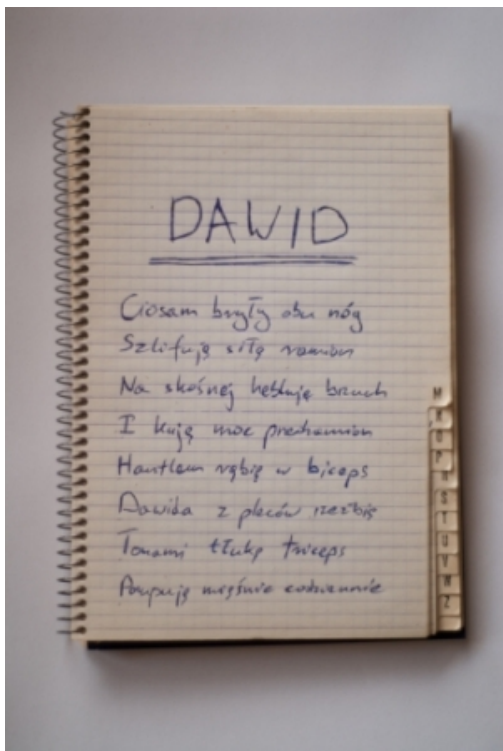 DAWID
Ciosam bryły obu nóg
Szlifuję siłę ramion
Na skośnej hebluję brzuch
I kuję moc przedramion
Hantlem rąbię w biceps
Dawida z pleców rzeźbię
Tonami tłukę triceps
Pompuję mięśnie codziennie
M
N
O
P
R
S
T
U
Z